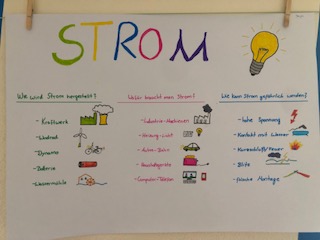 STROM
Wie wird Strom hergestellt?
- Kraftwerk
- Windrad
- Dynamo
- Batterie
- Wassermühle
Wofür braucht man Strom?
- Industrie-Maschinen
- Heizung-Licht
- Autos-Bahn
- Haushaltsgeräte
- Computer-Telefon
Wie kann Strom gefährlich werden?
- hohe Spannung
- Kontakt mit Wasser
- Kurzschluss/Feuer
- Blitz
- falsche Montage